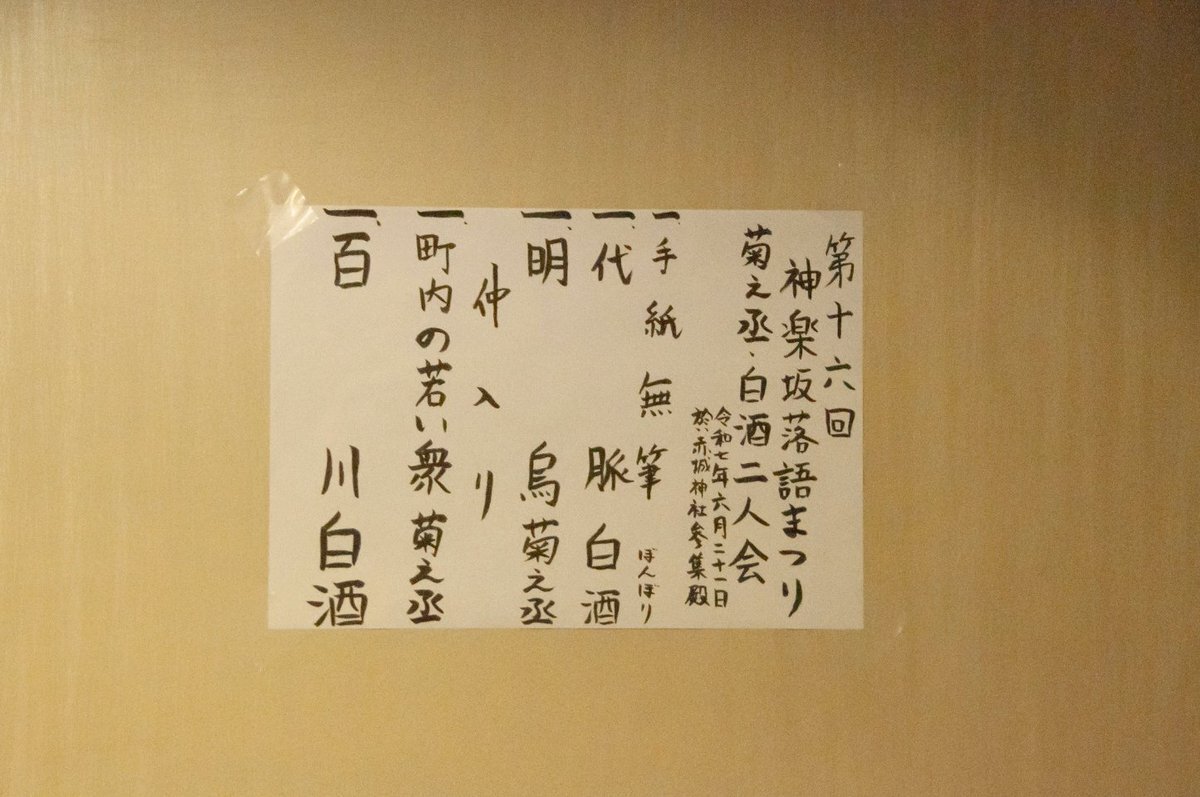 第十六回
神楽坂落語まつり
菊之丞・白酒二人会
令和七年六月二十一日
於：赤城神社参集殿
一、手紙無筆 ぼんぼり
一、代脈 白酒
一、明烏 菊之丞
仲入り
一、町内の若い衆 菊之丞
一、百川 白酒